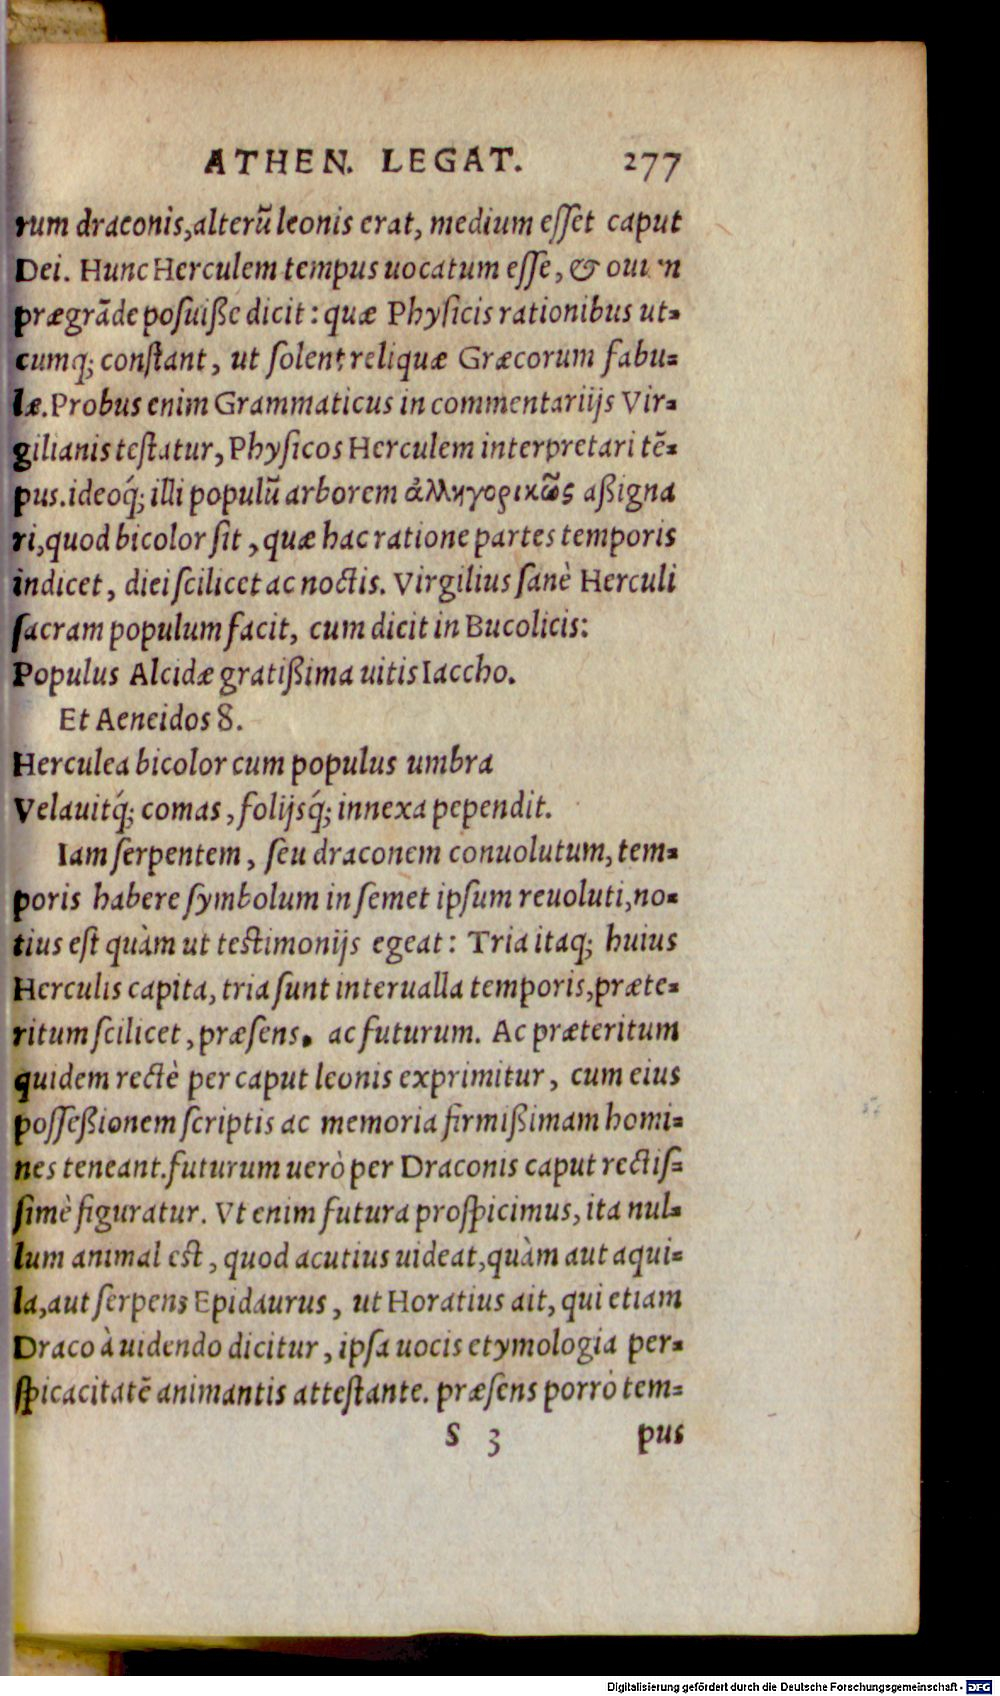 ATHEN. LEGAT. 277
rum draconis, alterũ leonis erat, medium esset caput
Dei. Hunc Herculem tempus uocatum esse, & ouum
prægrãde posuiße dicit: quæ Physicis rationibus ut-
cumq; constant, ut solent reliquæ Græcorum fabu-
læ. Probus enim Grammaticus in commentariijs Vir-
gilianis testatur, Physicos Herculem interpretari tẽ-
pus. ideoq́; illi populũ arborem ἀλληγορικῶς aßigna
ri, quod bicolor sit, quæ hac ratione partes temporis
indicet, diei scilicet ac noctis. Virgilius sanè Herculi
sacram populum facit, cum dicit in Bucolicis:
Populus Alcidæ gratißima uitis Iaccho.
Et Aeneidos 8.
Herculea bicolor cum populus umbra
Velauitq́; comas, folijsq́; innexa pependit.
Iam serpentem, seu draconem conuolutum, tem-
poris habere symbolum in semet ipsum reuoluti, no-
tius est quàm ut testimonijs egeat: Tria itaq; huius
Herculis capita, tria sunt interualla temporis, præte-
ritum scilicet, præsens, ac futurum. Ac præteritum
quidem rectè per caput leonis exprimitur, cum eius
posseßionem scriptis ac memoria firmißimam homi-
nes teneant. futurum uerò per Draconis caput rectis-
simè figuratur. Vt enim futura prospicimus, ita nul-
lum animal est, quod acutius uideat, quàm aut aqui-
la, aut serpens Epidaurus, ut Horatius ait, qui etiam
Draco à uidendo dicitur, ipsa uocis etymologia per-
spicacitatẽ animantis attestante. præsens porrò tem-
S 3 pus
Digitalisierung gefördert durch die Deutsche Forschungsgemeinschaft - DFG